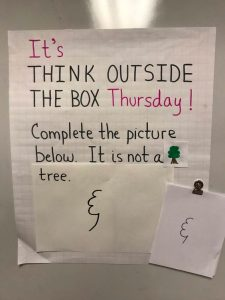 It's
THINK OUTSIDE
THE BOX Thursday!
Complete the picture
below. It is not a
tree.